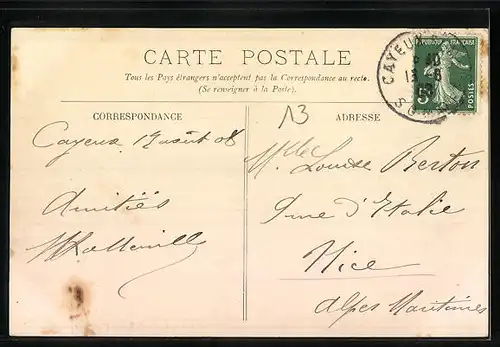 CARTE POSTALE
Tous les Pays étrangers n'acceptent pas la Correspondance au recto.
(Se renseigner à la Poste.)
CORRESPONDANCE
ADRESSE
13
Cayeux août 08
Amitiés
Mlle Louise Berton
rue d'Italie
Nice
Alpes Maritimes
CAYEUX
SOMME
POSTES